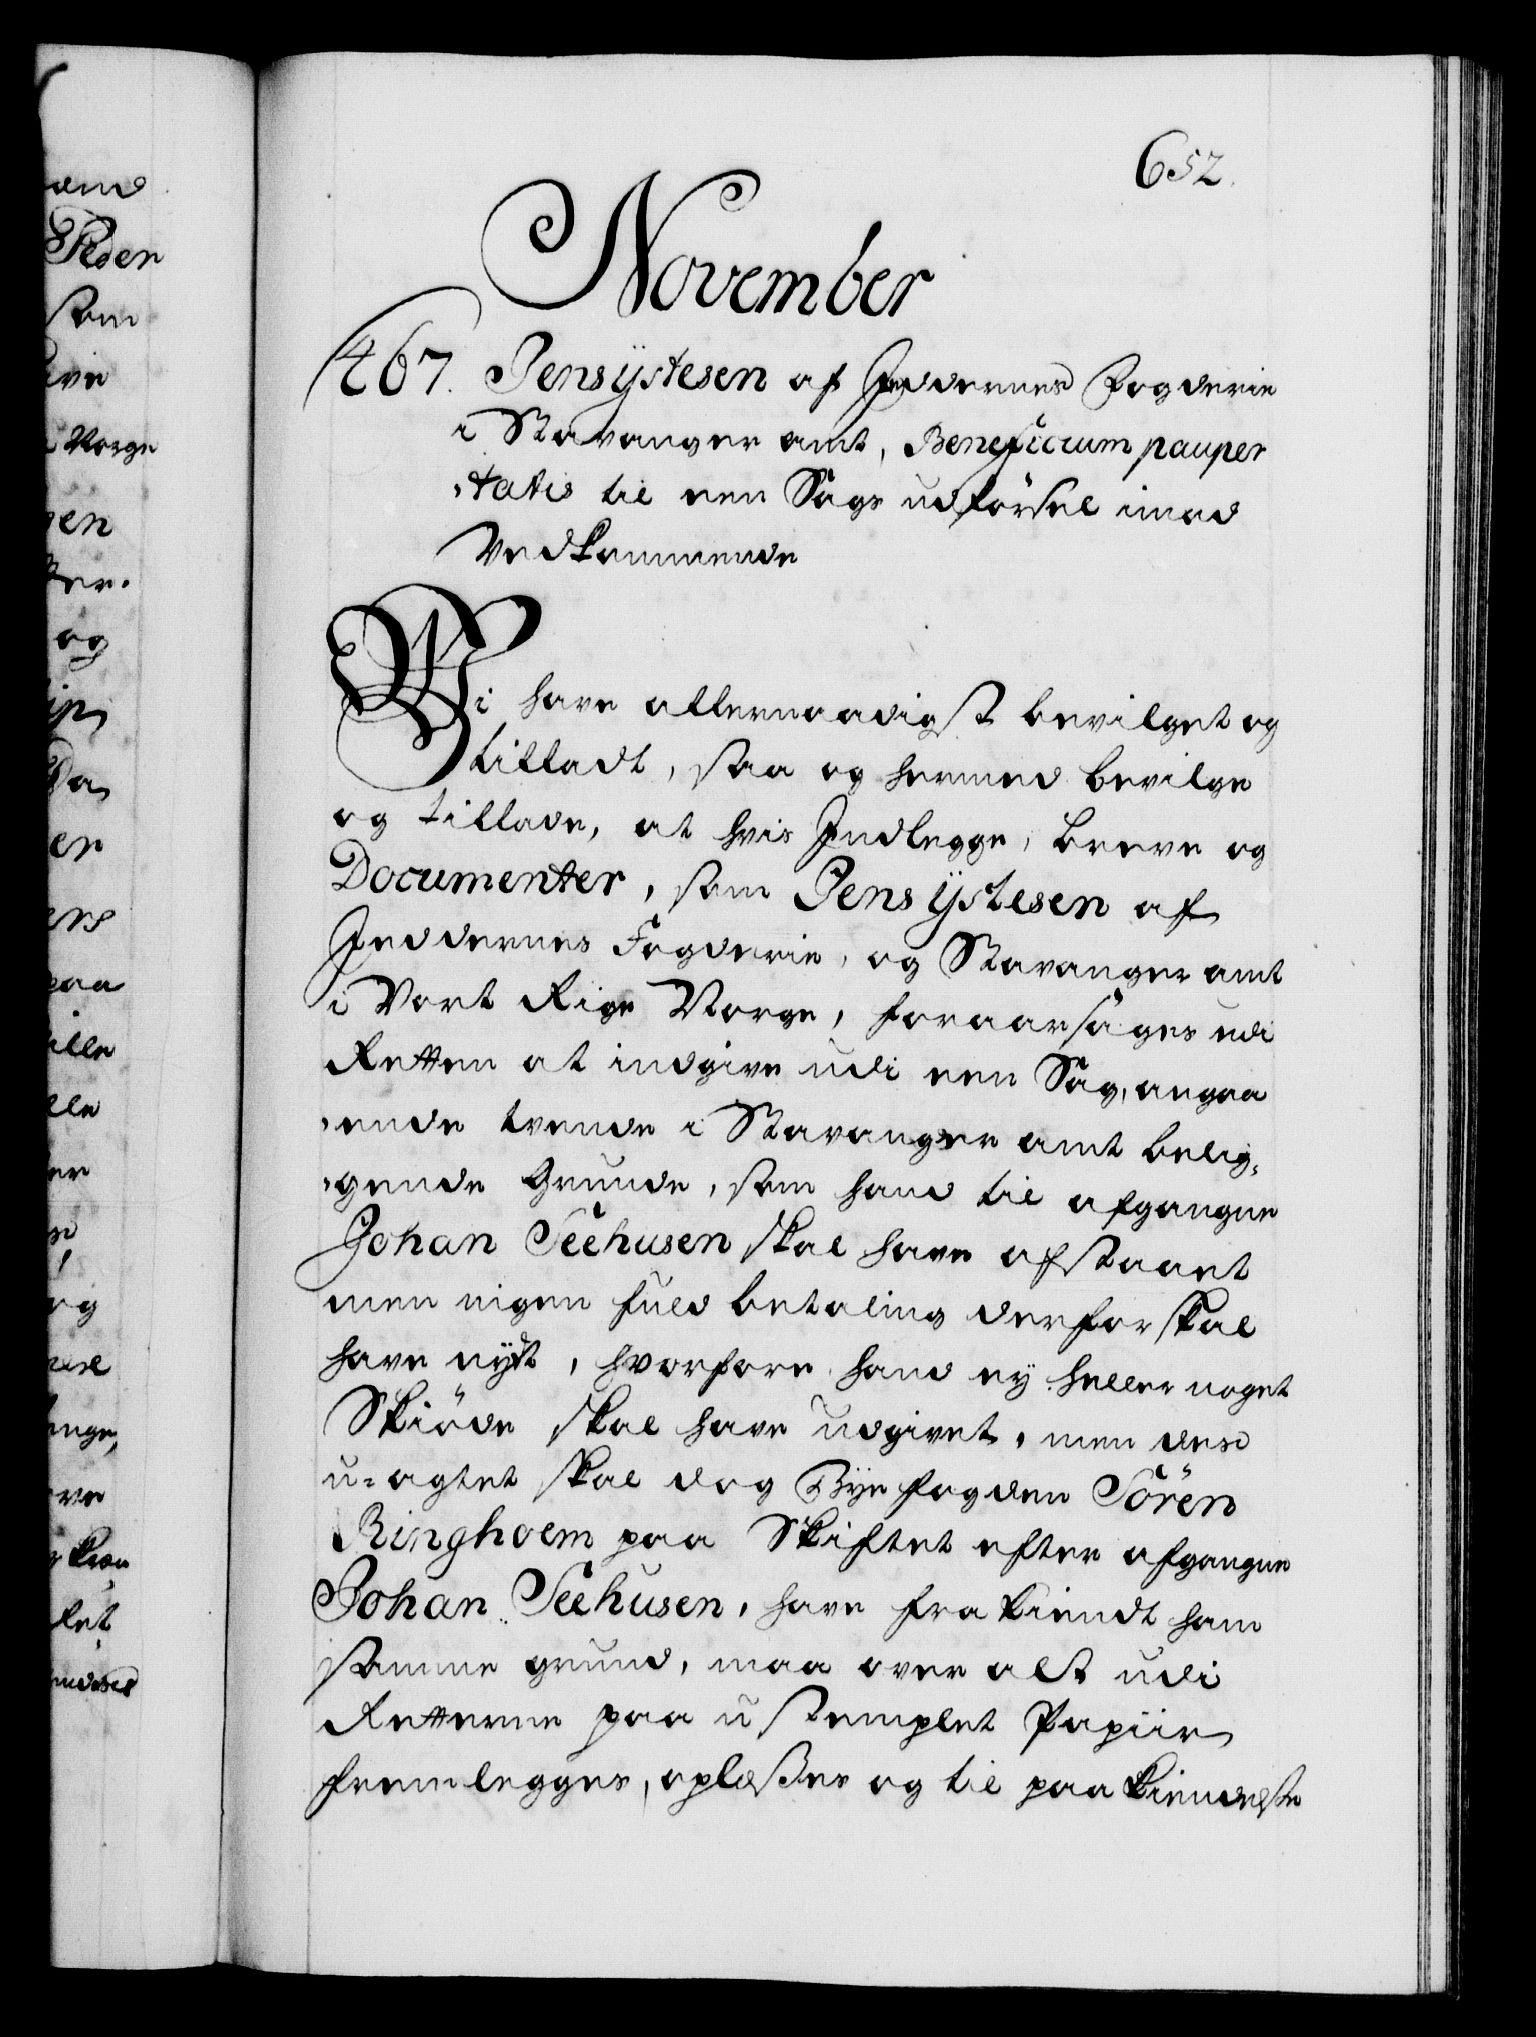 652.
November
467. Jens ÿstesen af Jedderens Fogderie
i Stavanger amt, Beneficium pauper
,tatis til een Sags udførsel imod
Vedkommende
Wi have allernaadigst bevilget og
tilladt, saa og hermed bevilge
og tillade, at hvis Indlegge, breve og
Documenter, som Jens ÿstesen af
Jedderens Fogderie, og Stavanger amt
i Vort Rige Norge, foraarsages udi
Retten at indgive udi een Sag, angaa
,ende tvende i Stavanger amt belig,
,gende Grunde, som hand til afgangne
Johan Seehusen skal have afstaaet
men eigen fuld betaling derfor skal
have nÿdt, hvorfore hand eÿ heller noget
Skiöde skal have udgivet, men des
u-agtet skal dog Bÿefogden Sören
Ringholm paa Skiftet efter afgangne
Johan Seehusen, have fra kiendt ham
samme grund, maa over alt udi
Retterne paa ustemplet Papiir
fremlegges, oplæßes og til paa kiendelse
and
Peder
som
Norge
gen
og
Da
er
ers
paa
ille
lle
er
og
ve
let